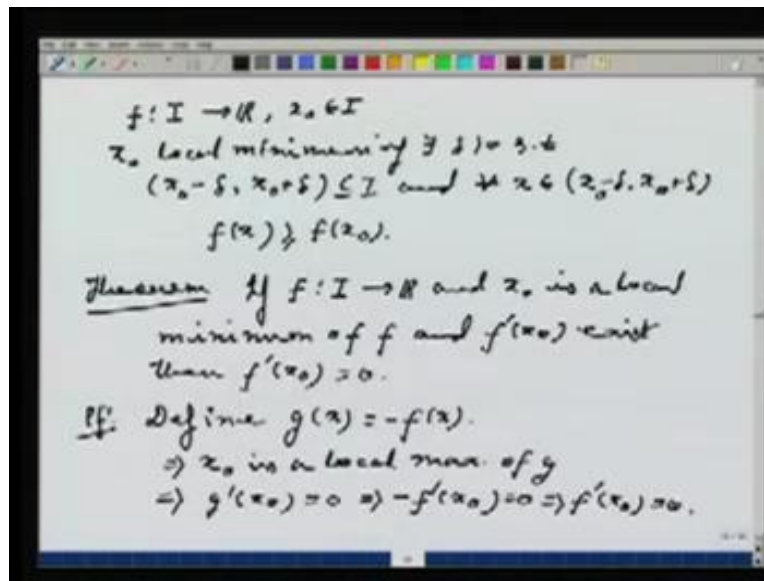 f: I → ℝ, x₀ ∈ I
x₀ local minimum if ∃ δ > 0 s.t
(x₀ - δ, x₀ + δ) ⊆ I and ∀ x ∈ (x₀ - δ, x₀ + δ)
f(x) ≥ f(x₀).
Theorem If f: I → ℝ and x₀ is a local
minimum of f and f'(x₀) exist
then f'(x₀) = 0.
Pf. Define g(x) = -f(x).
⇒ x₀ is a local max. of g
⇒ g'(x₀) = 0 ⇒ -f'(x₀) = 0 ⇒ f'(x₀) = 0.